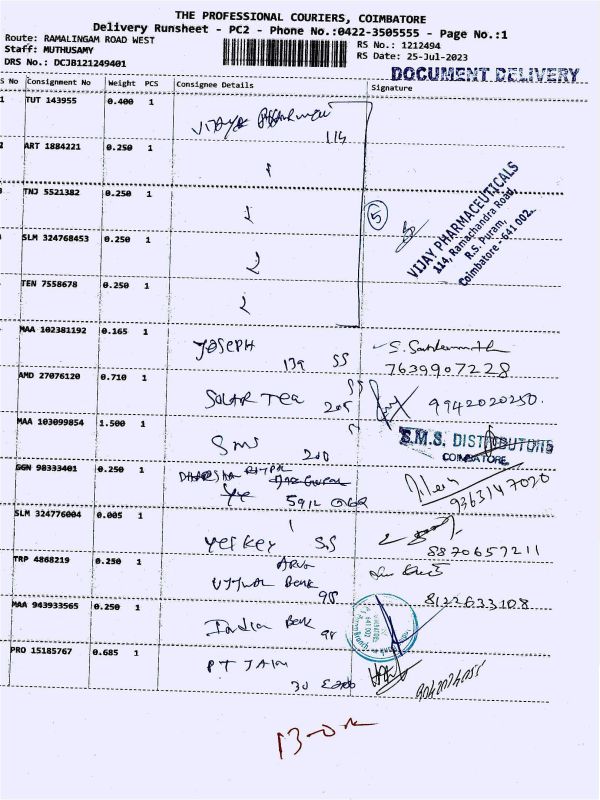 THE PROFESSIONAL COURIERS, COIMBATORE
Delivery Runsheet - PC2 - Phone No.:0422-3505555 - Page No.:1
Route: RAMALINGAM ROAD WEST
RS No.: 1212494
Staff: MUTHUSAMY
RS Date: 25-Jul-2023
DRS No.: DCJB121249401
DOCUMENT DELIVERY
S No Consignment No Weight PCS Consignee Details Signature
1 TUT 143955 0.400 1
114
2 ART 1884221 0.250 1
3 TNJ 5521382 0.250 1
5
VIJAY PHARMACEUTICALS
114, Ramachandra Road,
R.S. Puram,
Coimbatore - 641 002.
SLM 324768453 0.250 1 2
TEN 7558678 0.250 1 2
MAA 102381192 0.165 1 JOSEPH 139 SS
7639907228
AMD 27076120 0.710 1 SOLAR TEA 205 SS
9942020250.
MAA 103099854 1.500 1 SMS 210
S.M.S. DISTRIBUTORS
COIMBATORE
GGN 98333401 0.250 1
9363147020
SLM 324776004 0.005 1 SS
8870657211
TRP 4868219 0.250 1 Bank 98
8122633108
MAA 943933565 0.250 1 Indian Bank 98
PRO 15185767 0.685 1 PT JAIN 30